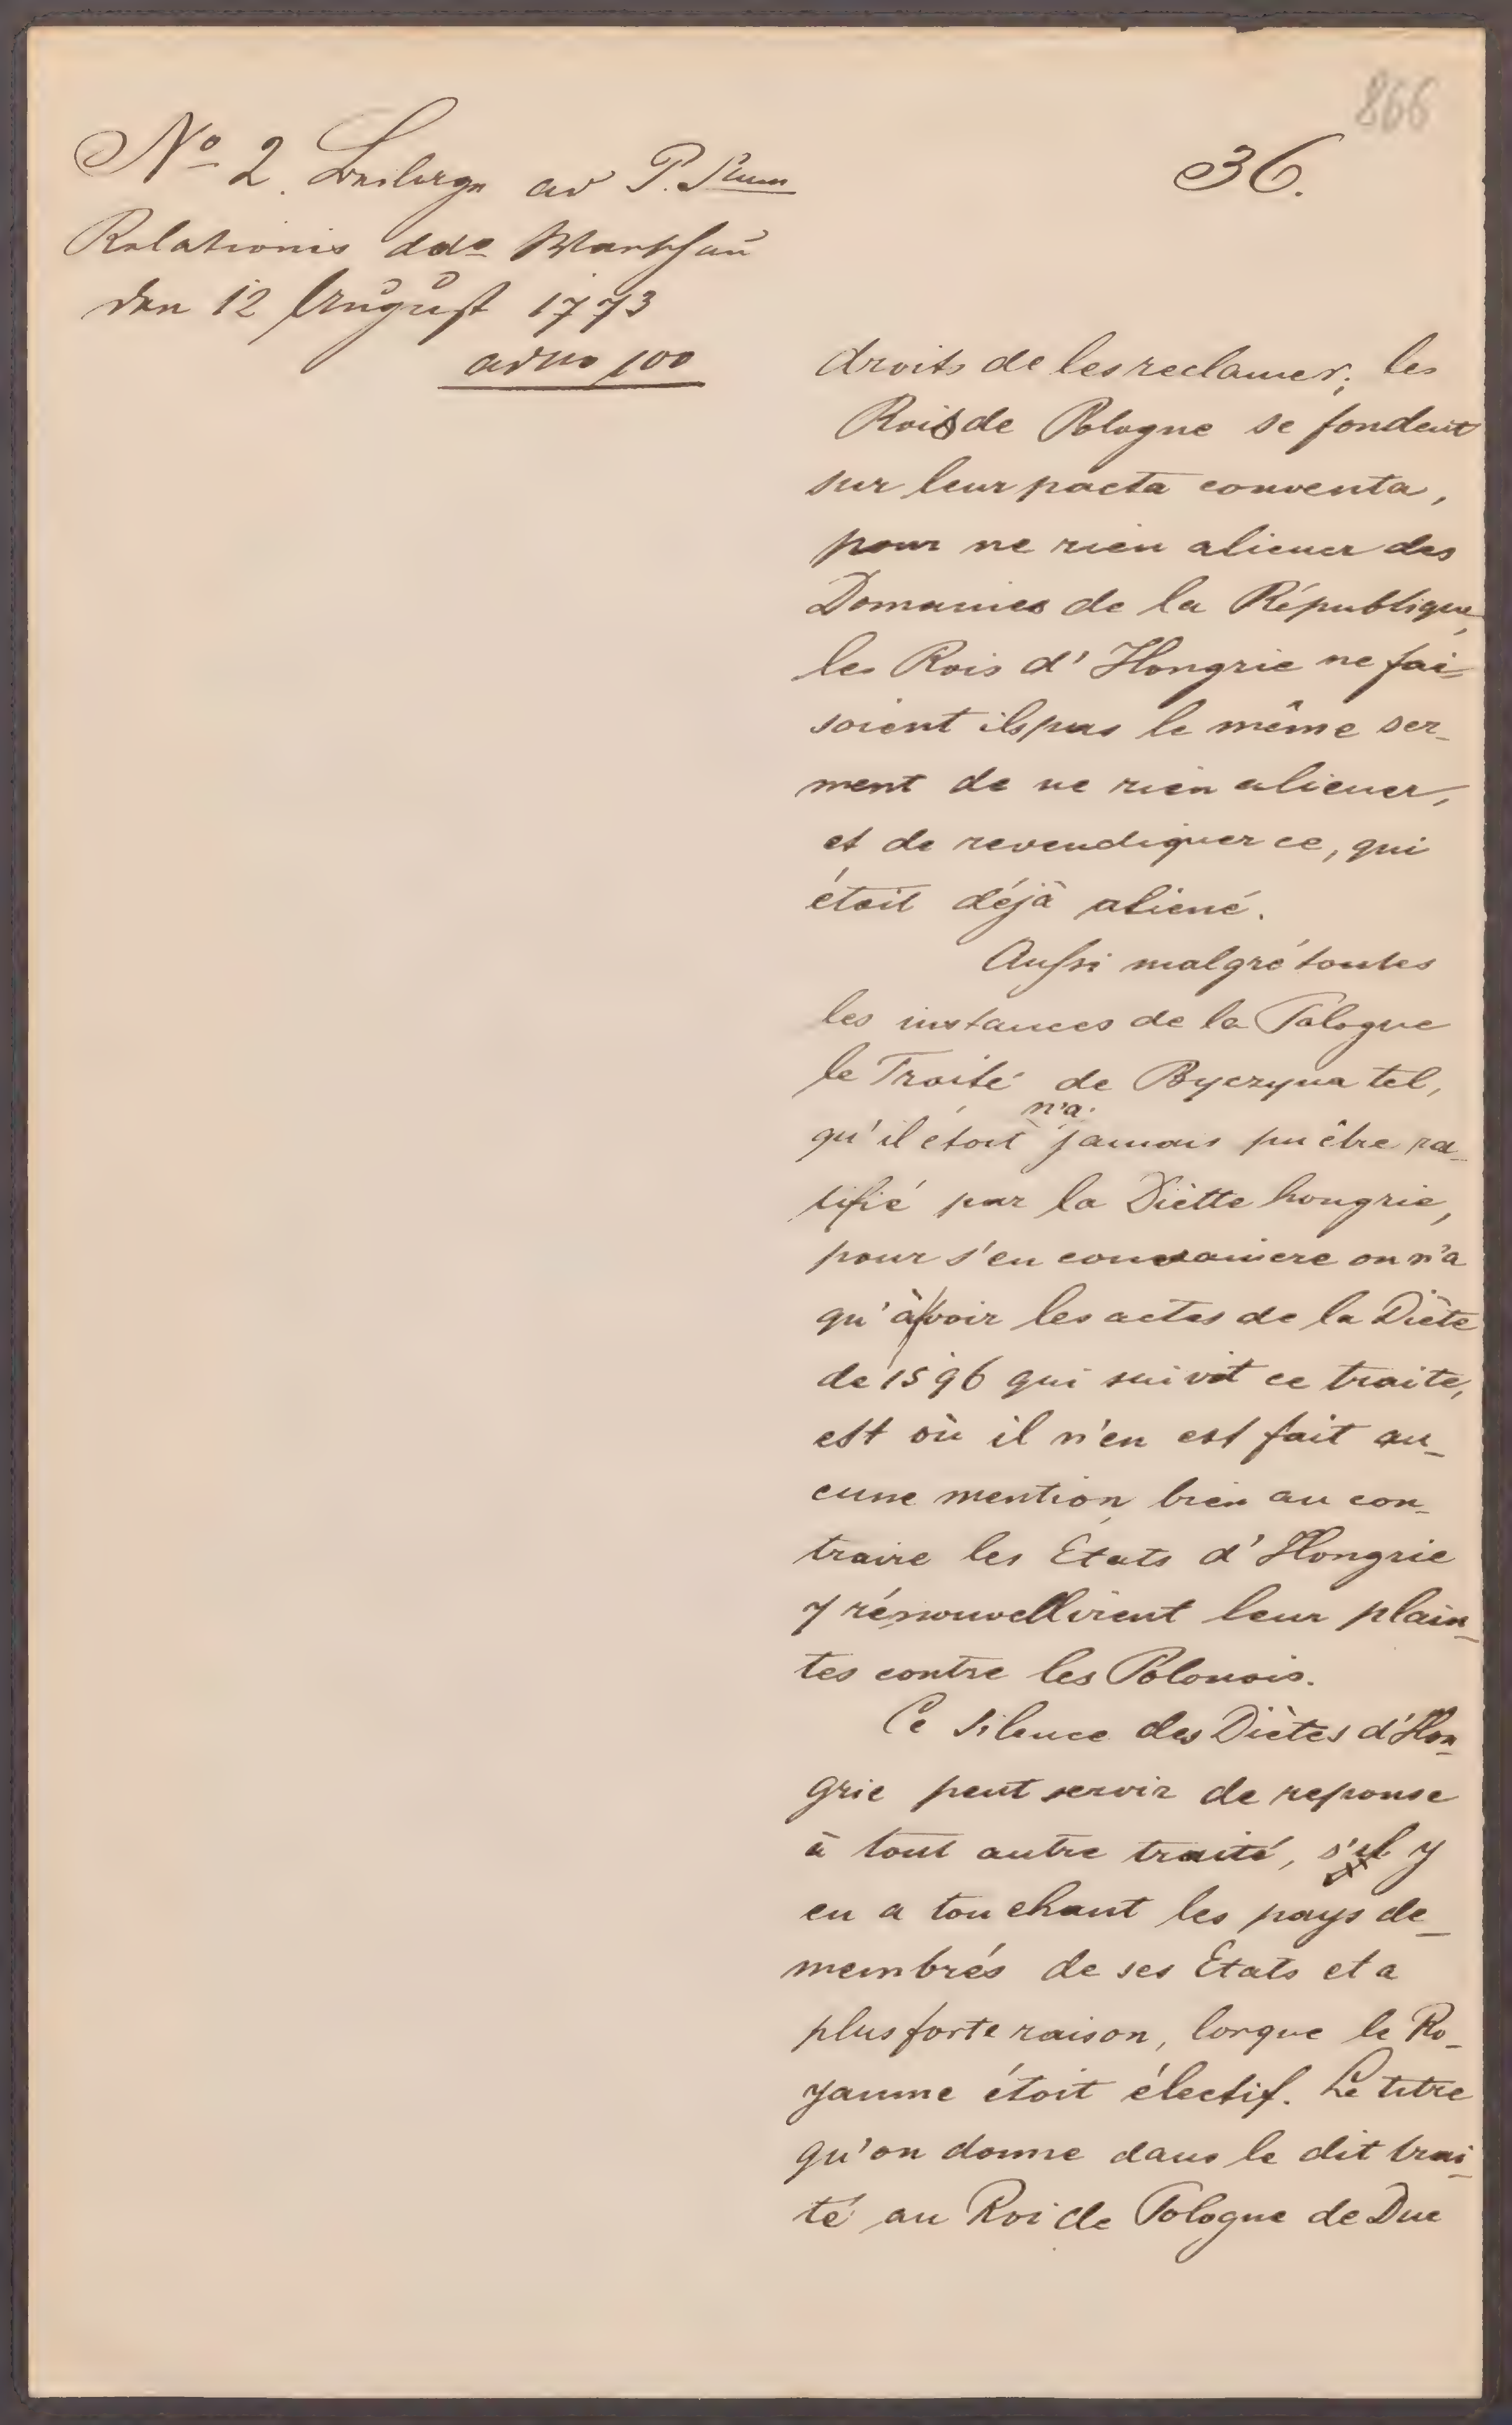 866
36.
No 2. Beilage ad P. Sum
Relationis ddo Warschau
den 12 August 1773
adno 100
droits de les reclamer; les
Rois de Pologne se fondent
sur leur pacta conventa,
pour ne rien aliener des
Domaines de la République,
les Rois d'Hongrie ne fai-
soient ils pas le même ser-
ment de ne rien aliener,
et de revendiquer ce, qui
étoit déjà aliené.
Aussi malgré toutes
les instances de la Pologne
le Traité de Byczyna tel,
qu'il étoit n'a jamais pu être ra-
tifié par la Diètte hongrie,
pour s'en convainere on n'a
qu'à voir les actes de la Diète
de 1596 qui suivit ce traite,
est où il n'en est fait au-
cune mention, bien au con-
traire les Etats d'Hongrie
y rénouvellirent leur plain-
tes contre les Polonois.
Ce silence des Diètes d'Hon-
grie peut servir de reponse
à tout autre traité, s'il y
en a touchant les pays de-
membrés de ses Etats et a
plus forte raison, lorque le Ro-
yaume étoit électif. Le titre
qu'on donne dans le dit trai-
té au Roi de Pologne de Duc